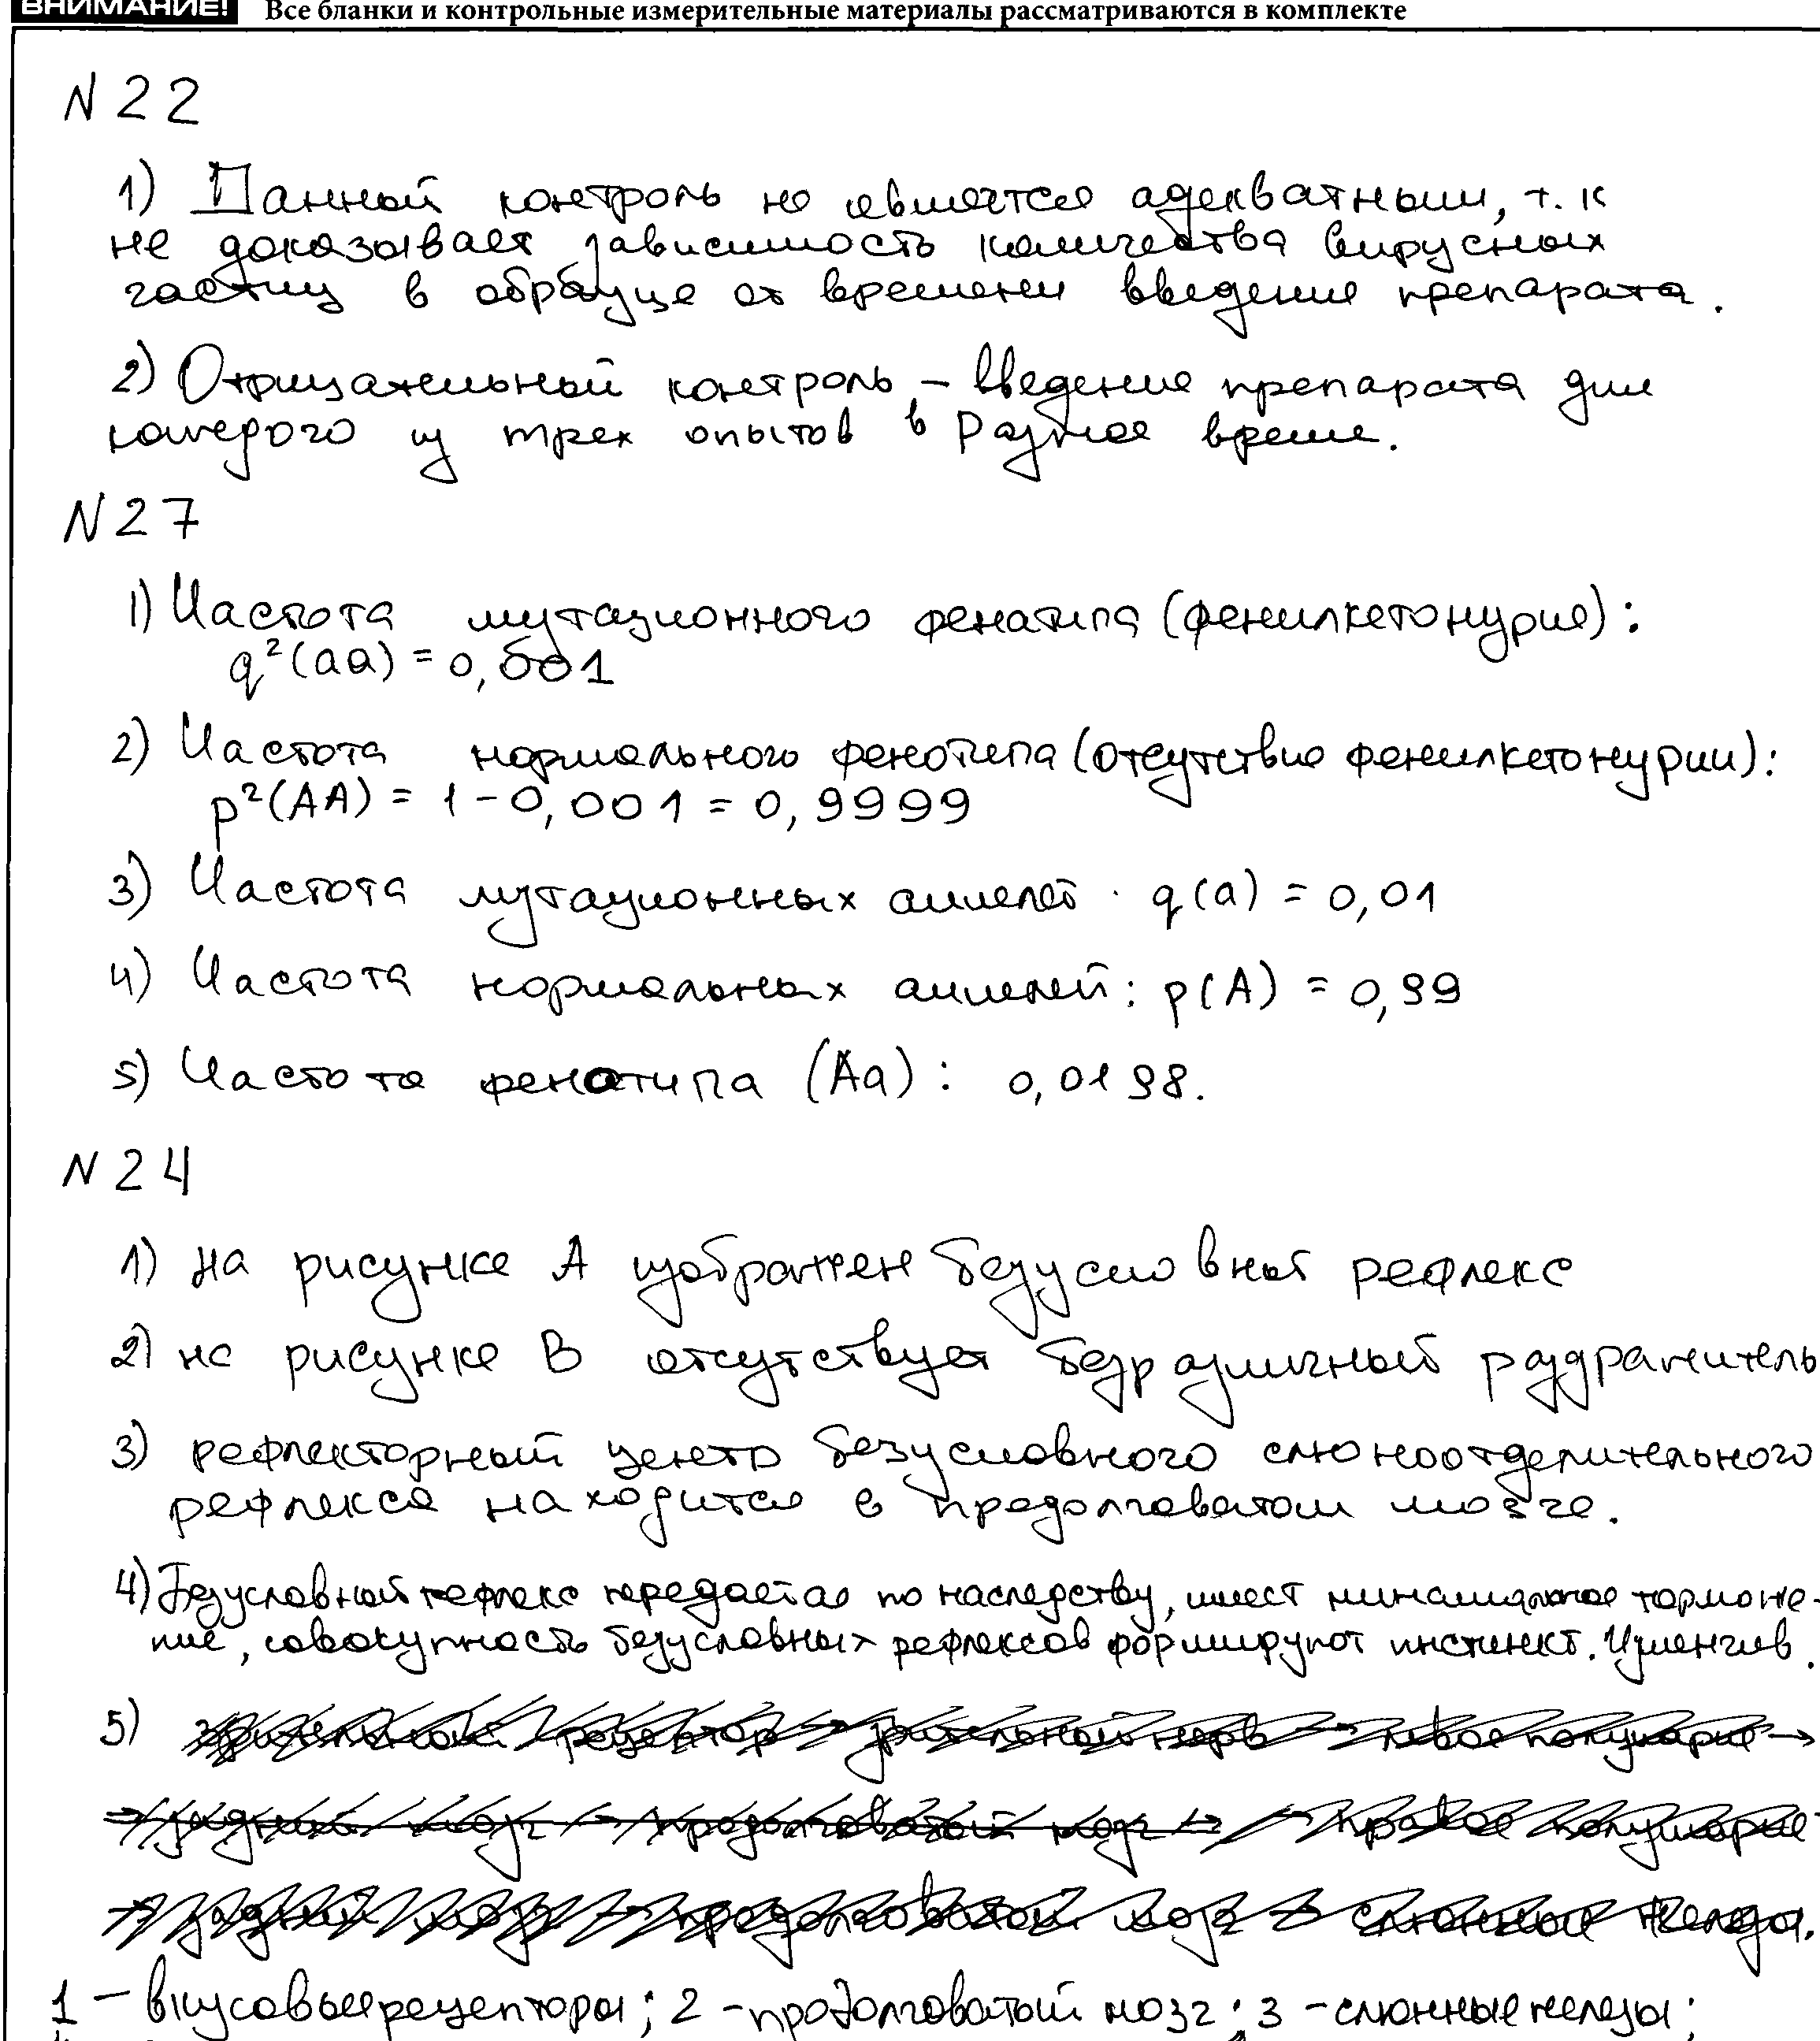 ВНИМАНИЕ! Все бланки и контрольные измерительные материалы рассматриваются в комплекте
N 22
1) Данный контроль не является адекватным, т. к
не доказывает зависимость количества вирусных
частиц в образце от времени введения препарата.
2) Отрицательный контроль – введение препарата для
каждого из трех опытов в разное время.
N 27
1) Частота мутационного фенотипа (фенилкетонурия):
q²(aa) = 0,001
2) Частота нормального фенотипа (отсутствие фенилкетонурии):
p²(AA) = 1 – 0,001 = 0,9999
3) Частота мутационных аллелей: q(a) = 0,01
4) Частота нормальных аллелей: p(A) = 0,99
5) Частота фенотипа (Aa): 0,0198.
N 24
1) На рисунке А изображен безусловный рефлекс
2) на рисунке В отсутствует безразличный раздражитель
3) рефлекторный центр безусловного слюноотделительного
рефлекса находится в продолговатом мозге.
4) Безусловный рефлекс передается по наследству, имеет торможе-
ние, совокупность безусловных рефлексов формируют инстинкт. Изменчив.
5) зрительный рецептор → зрительный нерв → левое полушарие →
→ задний мозг → продолговатый мозг → правое полушарие
→ задний мозг → продолговатый мозг → слюнные железы.
1 – вкусовые рецепторы; 2 – продолговатый мозг; 3 – слюнные железы;